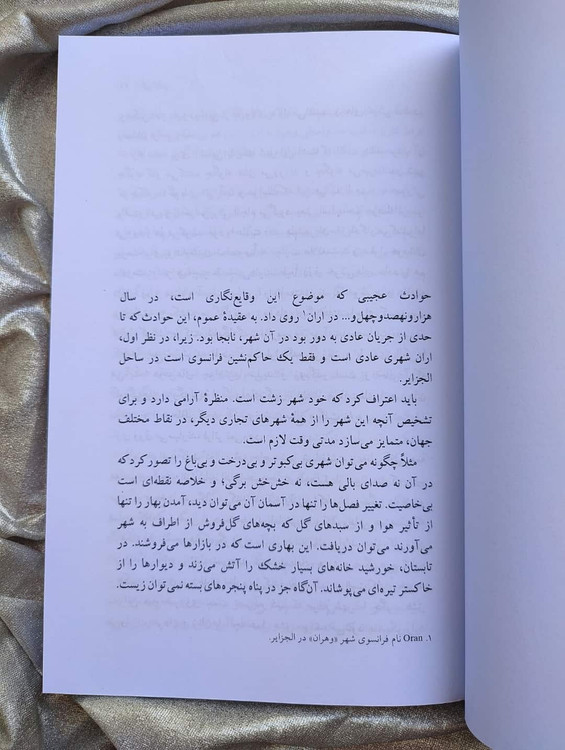 حوادث عجیبی که موضوع این وقایع‌نگاری است، در سال
هزارونهصدوچهل‌و... در اران۱ روی داد. به عقیدهٔ عموم، این حوادث که تا
حدی از جریان عادی به دور بود در آن شهر، نابجا بود. زیرا، در نظر اول،
اران شهری عادی است و فقط یك حاکم‌نشین فرانسوی است در ساحل
الجزایر.
باید اعتراف کرد که خود شهر زشت است. منظرهٔ آرامی دارد و برای
تشخیص آنچه این شهر را از همهٔ شهرهای تجاری دیگر، در نقاط مختلف
جهان، متمایز می‌سازد مدتی وقت لازم است.
مثلاً چگونه می‌توان شهری بی‌کبوتر و بی‌درخت و بی‌باغ را تصور کرد که
در آن نه صدای بالی هست، نه خش‌خش برگی؛ و خلاصه نقطه‌ای است
بی‌خاصیت. تغییر فصل‌ها را تنها در آسمان آن می‌توان دید، آمدن بهار را تنها
از تأثیر هوا و از سبدهای گل که بچه‌های گل‌فروش از اطراف به شهر
می‌آورند می‌توان دریافت. این بهاری است که در بازارها می‌فروشند. در
تابستان، خورشید خانه‌های بسیار خشك را آتش می‌زند و دیوارها را از
خاکستر تیره‌ای می‌پوشاند. آن‌گاه جز در پناه پنجره‌های بسته نمی‌توان زیست.
۱. Oran نام فرانسوی شهر «وهران» در الجزایر.